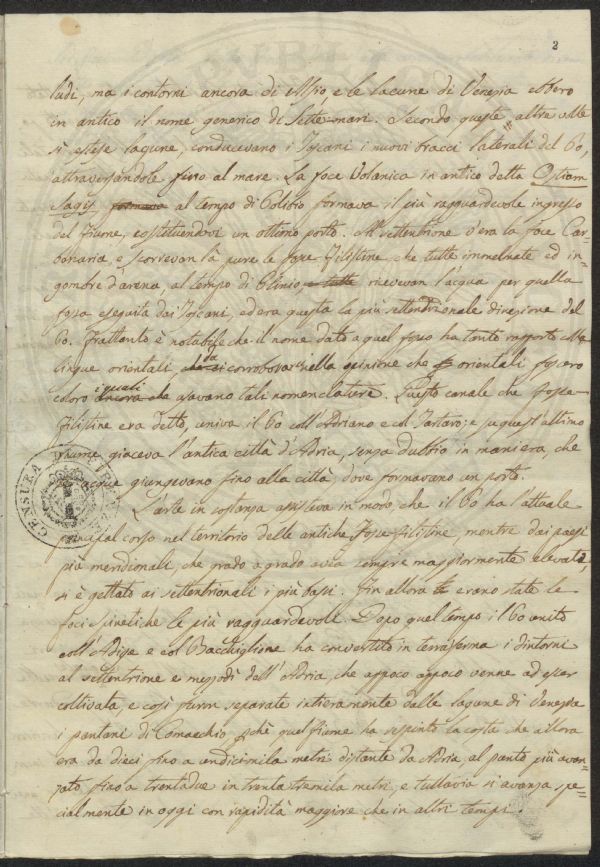 2
ludi, ma i contorni ancora di essio, e le lacune di Venezia ebbero
in antico il nome generico di Sette-mari. Secondo queste, altre volte
sì estese lagune, conducevano i Toscani i nuovi bracci laterali del Po,
attraversandole fino al mare. La foce Volanica in antico detta Ostium
Sagis formava al tempo di Polibio formava il più ragguardevole ingresso
del fiume, costituendovi un ottimo porto. All'settentrione v'era la foce Car-
bonaria e scorrevan là pure le fosse filistine che tutte immelmate ed in-
gombre d'arena, al tempo di Plinio, e tutte ricevevan l'acqua per quella
fossa eseguita dai Toscani, ed era questa la più settentrionale direzione del
Po. Frattanto è notabile che il nome dato a quel fosso ha tanto rapporto alle
lingue orientali, corroborarsi nella opinione che orientali fossero
coloro i quali ancora che usavano tali nomenclature. Questo canale che fosse
filistine era detto, univa il Po coll'Adriano e col Tartaro; e su quest'ultimo
fiume giaceva l'antica città d'Adria, senza dubbio in maniera, che
acque giungevano fino alla città, dove formavano un porto.
L'arte in sostanza agisceva in modo, che il Po ha l'attuale
principal corso nel territorio delle antiche fosse filistine, mentre dai paesi
più meridionali, che grado a grado avea sempre maggiormente elevati,
si è gettato ai settentrionali i più bassi. Fin allora erano state le
foci spinetiche le più ragguardevoli. Dopo quel tempo il Po unito
coll'Adige e col Bacchiglione ha convertito in terraferma i dintorni
al settentrione e mezzodì dell'Adria, che appoco appoco venne ad esser
coltivata, e così furon separate intieramente dalle lagune di Venezia
i pantani di Comacchio, quel fiume ha respinto la costa che allora
era da dieci fino a undicimila metri distante da Adria, al punto più avan-
zato, fino a trentadue in trentatremila metri, e tuttavia si avanza spe-
cialmente in oggi con rapidità maggiore che in altri tempi.
CENSURA